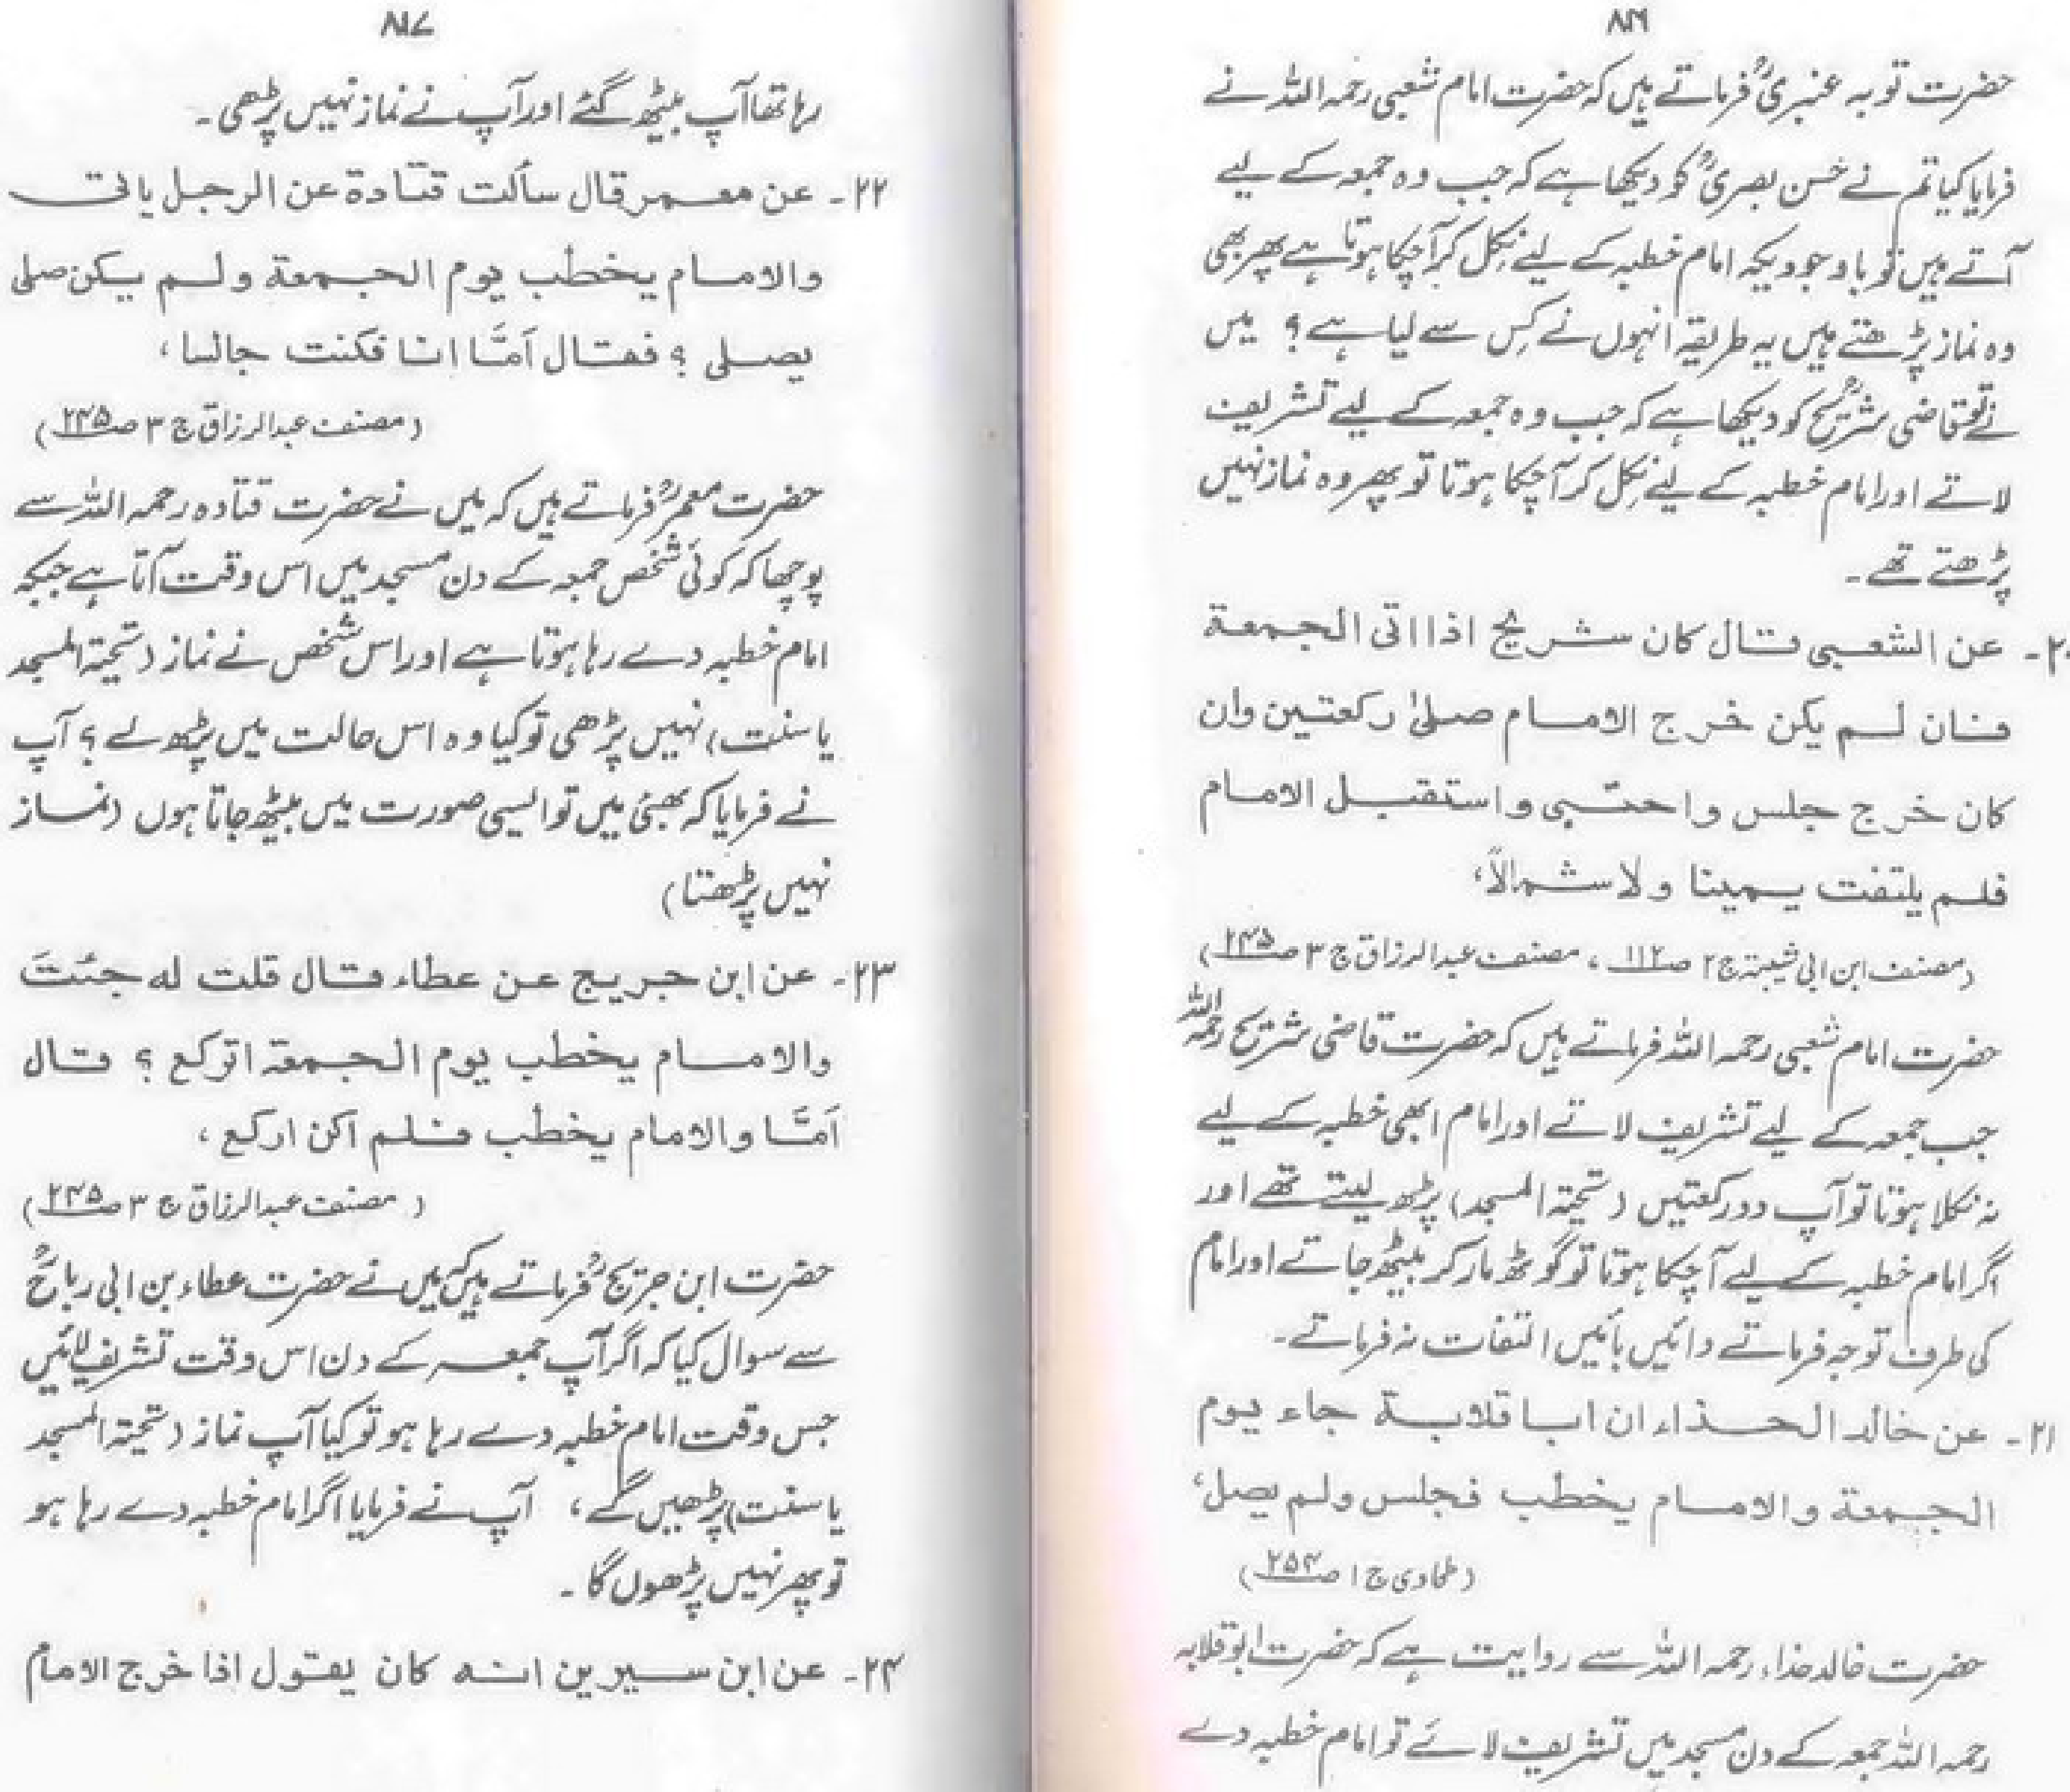 ۸۱۶
حضرت توبہ عنبریؒ فرماتے ہیں کہ حضرت امام شعبی رحمہ اللہ نے
فرمایا کیا تم نے حسن بصریؒ کو دیکھا ہے کہ جب وہ جمعہ کے لیے
آتے ہیں تو باوجودیکہ امام خطبہ کے لیے نکل کر آچکا ہوتا ہے پھر بھی
وہ نماز پڑھتے ہیں یہ طریقہ انہوں نے کس سے لیا ہے؟ میں
نے تو قاضی شریحؒ کو دیکھا ہے کہ جب وہ جمعہ کے لیے تشریف
لاتے اور امام خطبہ کے لیے نکل کر آچکا ہوتا تو پھر وہ نماز نہیں
پڑھتے تھے۔
۲۰۔ عن الشعبی قال کان شریح اذا اتی الجمعة
فان لم یکن خرج الامام صلیٰ رکعتین وان
کان خرج جلس واحتبی واستقبل الامام
فلم یلتفت یمینا ولا شمالاً،
(مصنف ابن ابی شیبۃ ج ۲ ص ۱۱۲، مصنف عبدالرزاق ج ۳ ص ۲۴۵)
حضرت امام شعبی رحمہ اللہ فرماتے ہیں کہ حضرت قاضی شریح رحمہ اللہ
جب جمعہ کے لیے تشریف لاتے اور امام ابھی خطبہ کے لیے
نہ نکلا ہوتا تو آپ دو رکعتیں (تحیۃ المسجد) پڑھ لیتے تھے اور
اگر امام خطبہ کے لیے آچکا ہوتا تو گوٹھ مار کر بیٹھ جاتے اور امام
کی طرف توجہ فرماتے دائیں بائیں التفات نہ فرماتے۔
۲۱۔ عن خالد الحذاء ان ابا قلابة جاء یوم
الجمعة والامام یخطب فجلس ولم یصل،
(طحاوی ج ۱ ص ۲۵۴)
حضرت خالد حذاء رحمہ اللہ سے روایت ہے کہ حضرت ابو قلابہ
رحمہ اللہ جمعہ کے دن مسجد میں تشریف لائے تو امام خطبہ دے
۸۱۷
رہا تھا آپ بیٹھ گئے اور آپ نے نماز نہیں پڑھی۔
۲۲۔ عن معمر قال سألت قتادة عن الرجل یاتی
والامام یخطب یوم الجمعة ولم یکن صلی
یصلی؟ فقال اَمَّا انا فکنت جالسا،
(مصنف عبدالرزاق ج ۳ ص ۲۴۵)
حضرت معمرؒ فرماتے ہیں کہ میں نے حضرت قتادہ رحمہ اللہ سے
پوچھا کہ کوئی شخص جمعہ کے دن مسجد میں اس وقت آتا ہے جبکہ
امام خطبہ دے رہا ہوتا ہے اور اس شخص نے نماز (تحیۃ المسجد
یا سنت) نہیں پڑھی تو کیا وہ اس حالت میں پڑھ لے؟ آپ
نے فرمایا کہ بھئی میں تو ایسی صورت میں بیٹھ جاتا ہوں (نماز
نہیں پڑھتا)
۲۳۔ عن ابن جریج عن عطاء قال قلت له جئتَ
والامام یخطب یوم الجمعة اترکع؟ قال
اَمَّا والامام یخطب فلم اکن ارکع،
(مصنف عبدالرزاق ج ۳ ص ۲۴۵)
حضرت ابن جریجؒ فرماتے ہیں کہ میں نے حضرت عطاء بن ابی رباحؒ
سے سوال کیا کہ اگر آپ جمعہ کے دن اس وقت تشریف لائیں
جس وقت امام خطبہ دے رہا ہو تو کیا آپ نماز (تحیۃ المسجد
یا سنت) پڑھیں گے، آپ نے فرمایا اگر امام خطبہ دے رہا ہو
تو پھر نہیں پڑھوں گا۔
۲۴۔ عن ابن سیرین انه کان یقول اذا خرج الامام